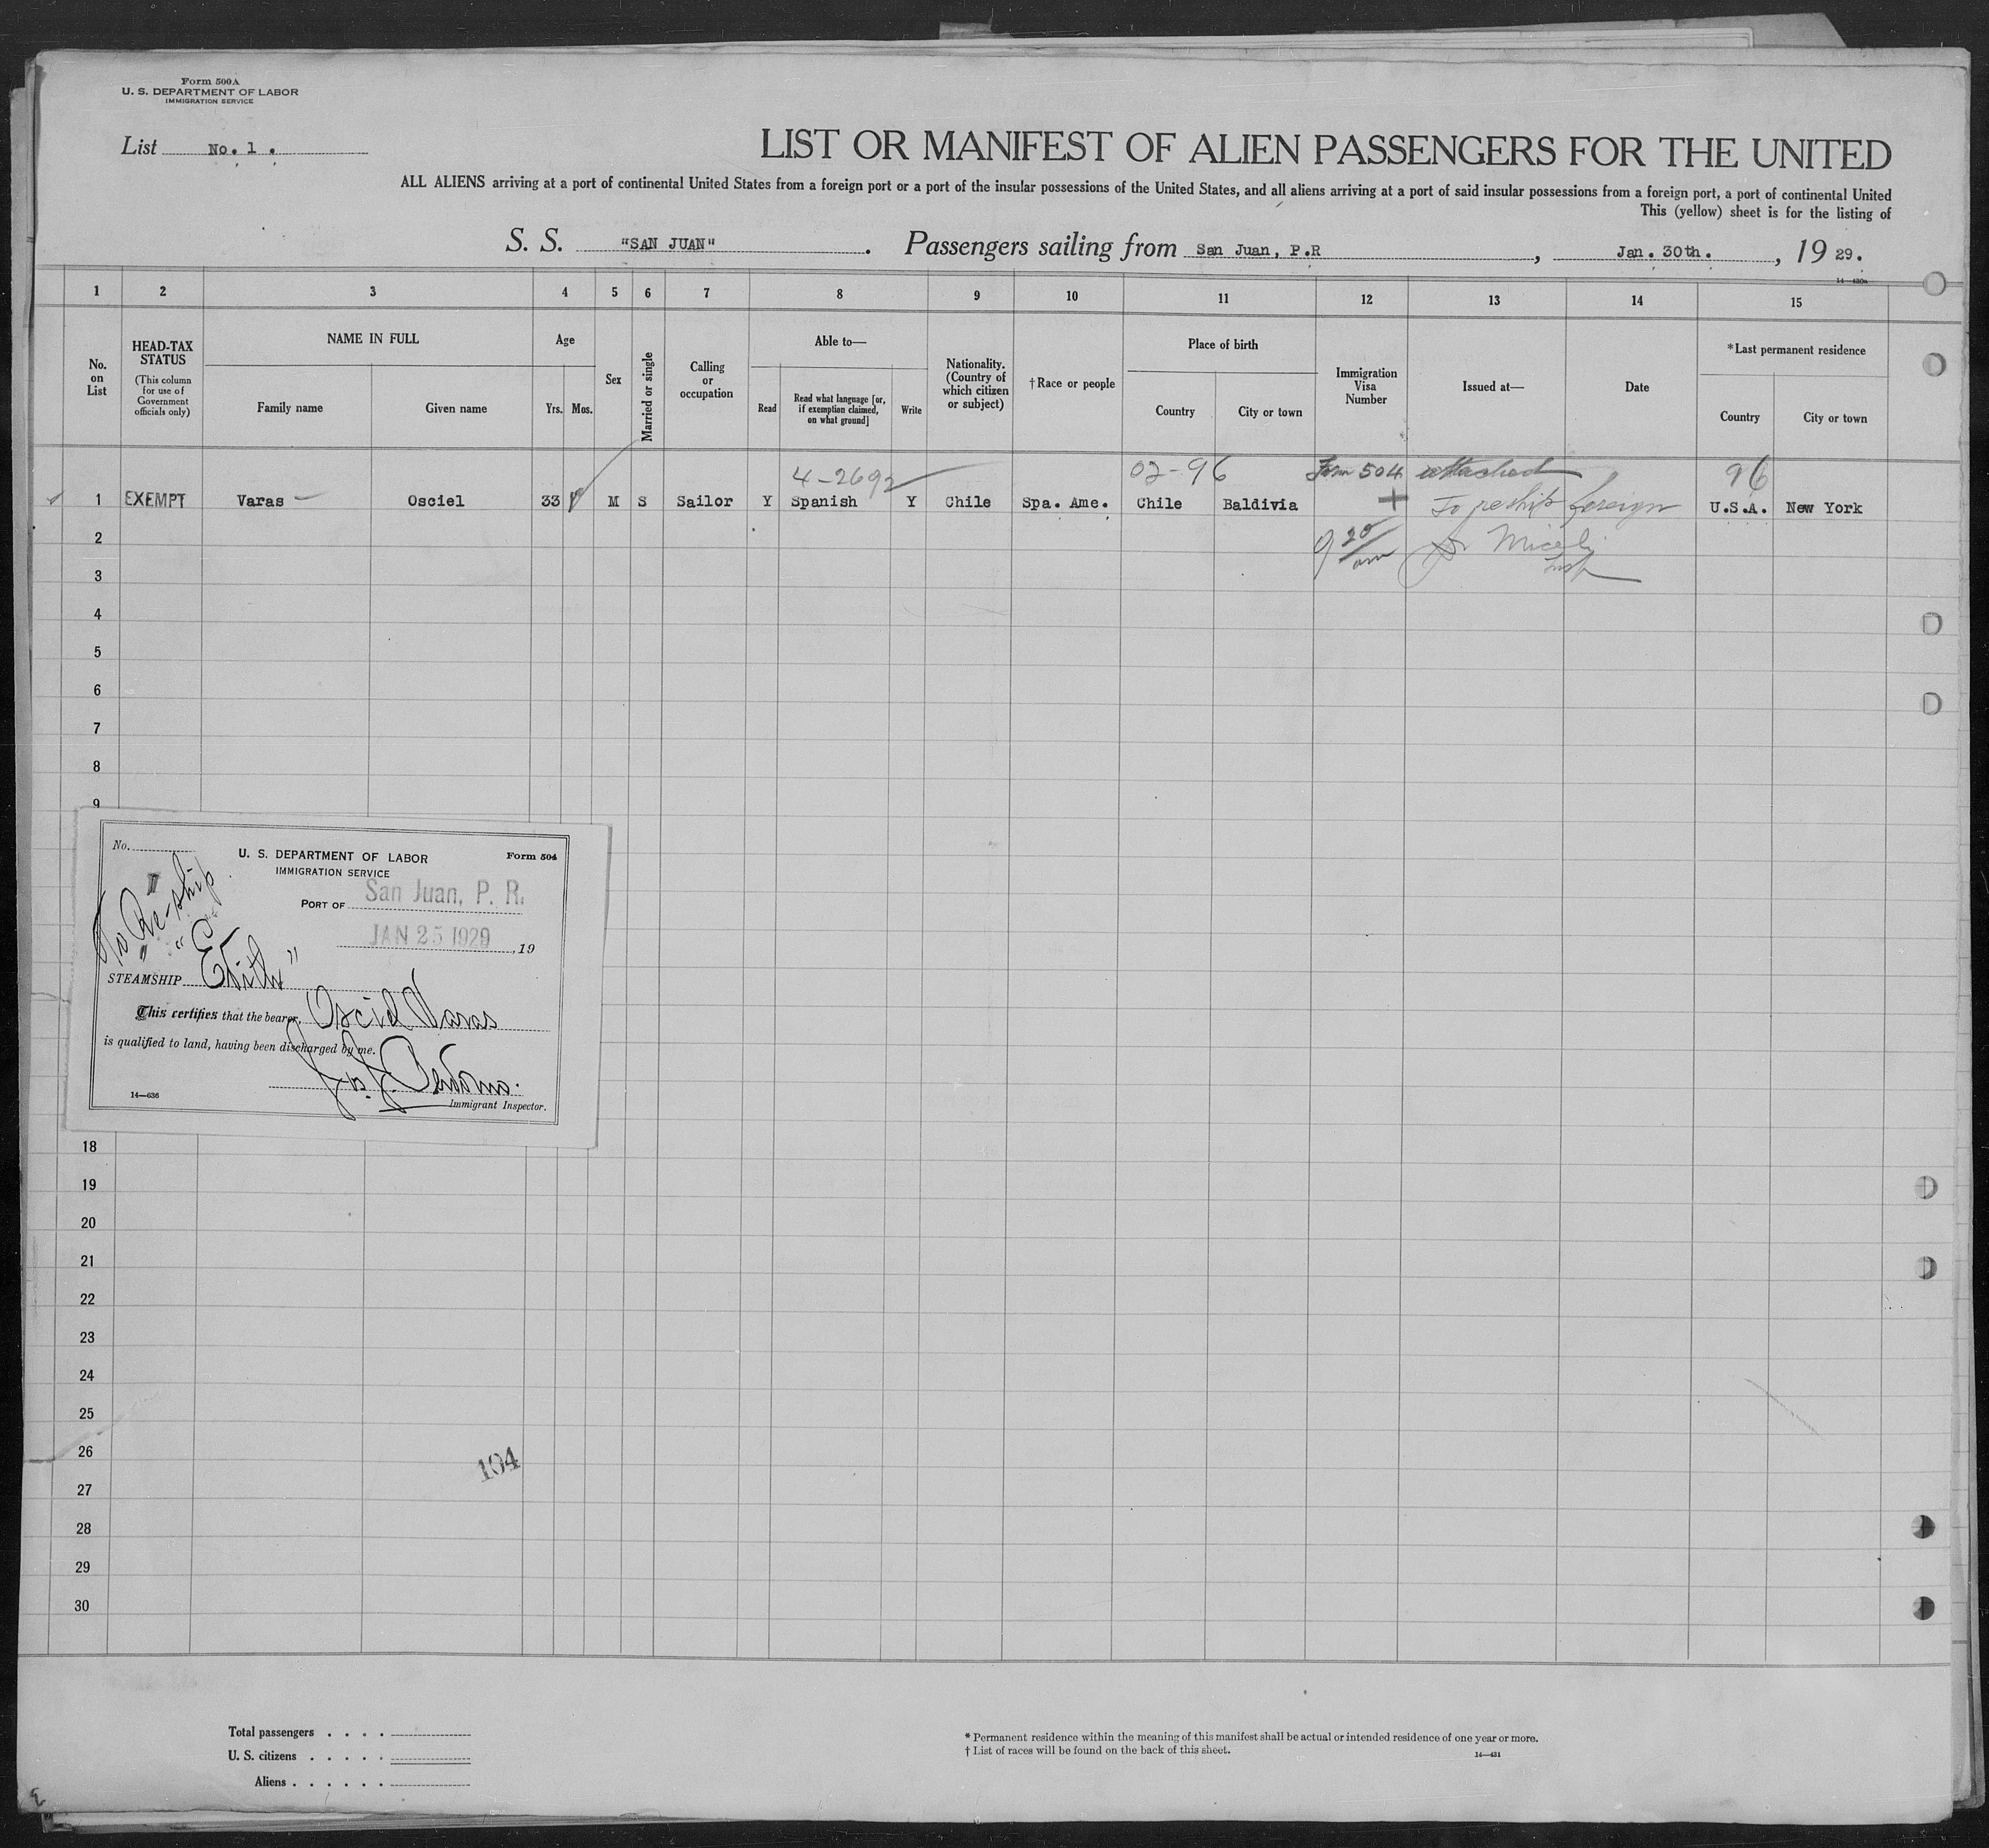 Form 500A
U. S. DEPARTMENT OF LABOR
IMMIGRATION SERVICE
List No. 1.
LIST OR MANIFEST OF ALIEN PASSENGERS FOR THE UNITED
ALL ALIENS arriving at a port of continental United States from a foreign port or a port of the insular possessions of the United States, and all aliens arriving at a port of said insular possessions from a foreign port, a port of continental United
This (yellow) sheet is for the listing of
S. S. "SAN JUAN". Passengers sailing from San Juan, P.R, Jan. 30th., 1929.
14—430a
1 2 3 4 5 6 7 8 9 10 11 12 13 14 15
No. on List
HEAD-TAX STATUS
(This column for use of Government officials only)
NAME IN FULL
Family name
Given name
Age
Yrs. Mos.
Sex
Married or single
Calling or occupation
Able to—
Read
Read what language [or, if exemption claimed, on what ground]
Write
Nationality. (Country of which citizen or subject)
†Race or people
Place of birth
Country
City or town
Immigration Visa Number
Issued at—
Date
*Last permanent residence
Country
City or town
4-2692 02-96 Form 504 attached 96
1 EXEMPT Varas Osciel 33 M S Sailor Y Spanish Y Chile Spa. Ame. Chile Baldivia + To reship foreign U.S.A. New York
2 9 20/am
3 Insp
4
5
6
7
8
9
No.
U. S. DEPARTMENT OF LABOR
Form 504
IMMIGRATION SERVICE
To Re-ship
PORT OF San Juan, P. R.
JAN 25 1929, 19
STEAMSHIP "Edith"
This certifies that the bearer, Osciel Varas
is qualified to land, having been discharged by me.
14—636
Immigrant Inspector.
18
19
20
21
22
23
24
25
26
104
27
28
29
30
Total passengers . . . .
U. S. citizens . . . . .
Aliens . . . . . .
* Permanent residence within the meaning of this manifest shall be actual or intended residence of one year or more.
† List of races will be found on the back of this sheet.
14—431